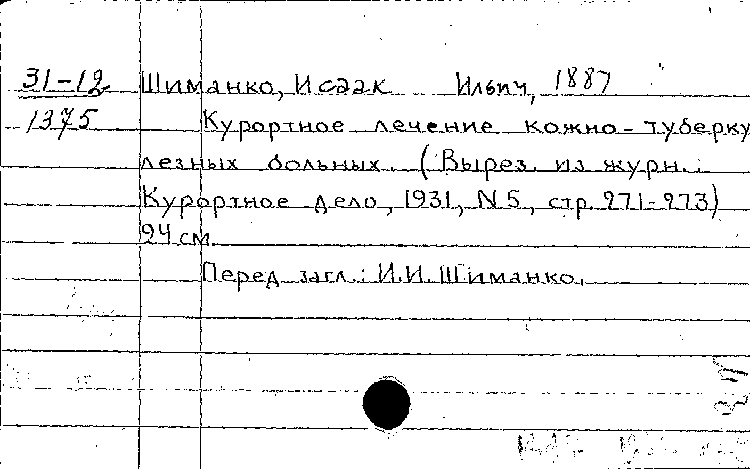 31-12 Шиманко, Исаак Ильич, 1887
1375 Курортное лечение кожно-туберку
лезных больных. (Вырез. из журн.:
Курортное дело, 1931, N5, стр. 271-273)
24 см.
Перед загл.: И.И. Шиманко.